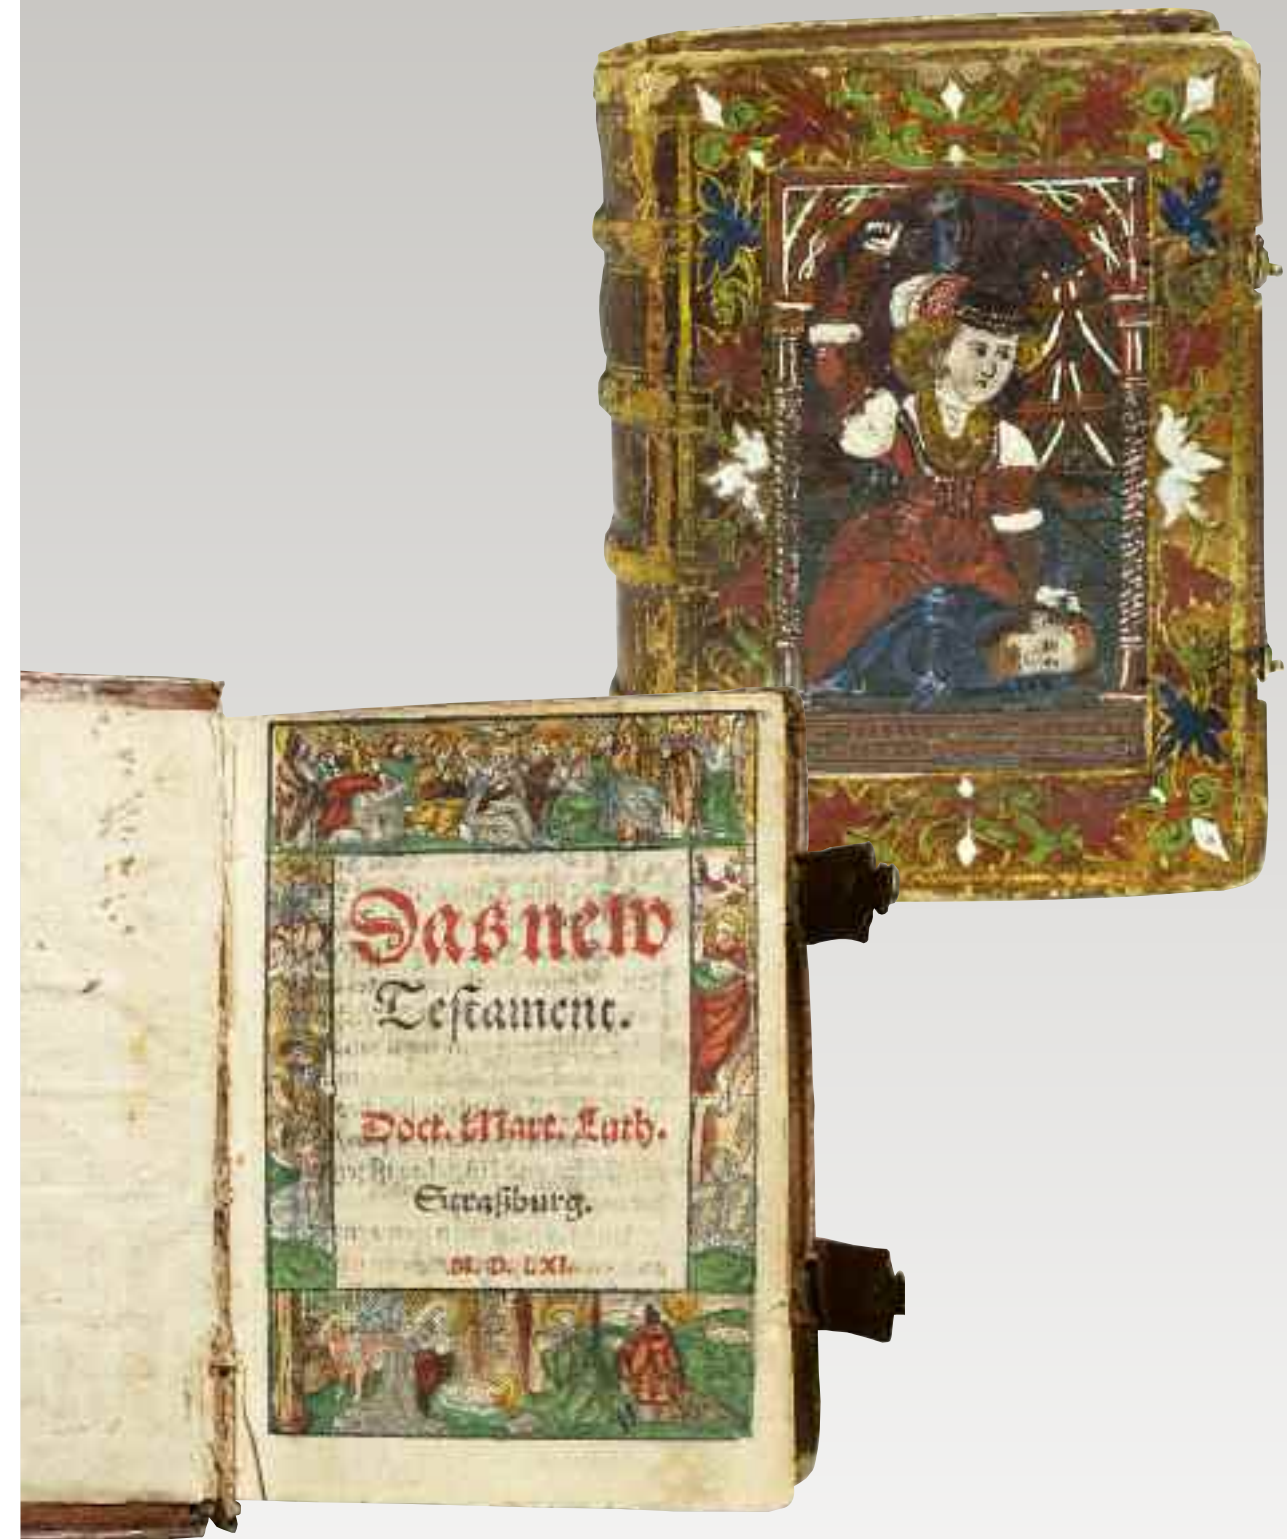 Das new
Testament.
Doct. Mart. Luth.
Straßburg.
M. D. LXI.